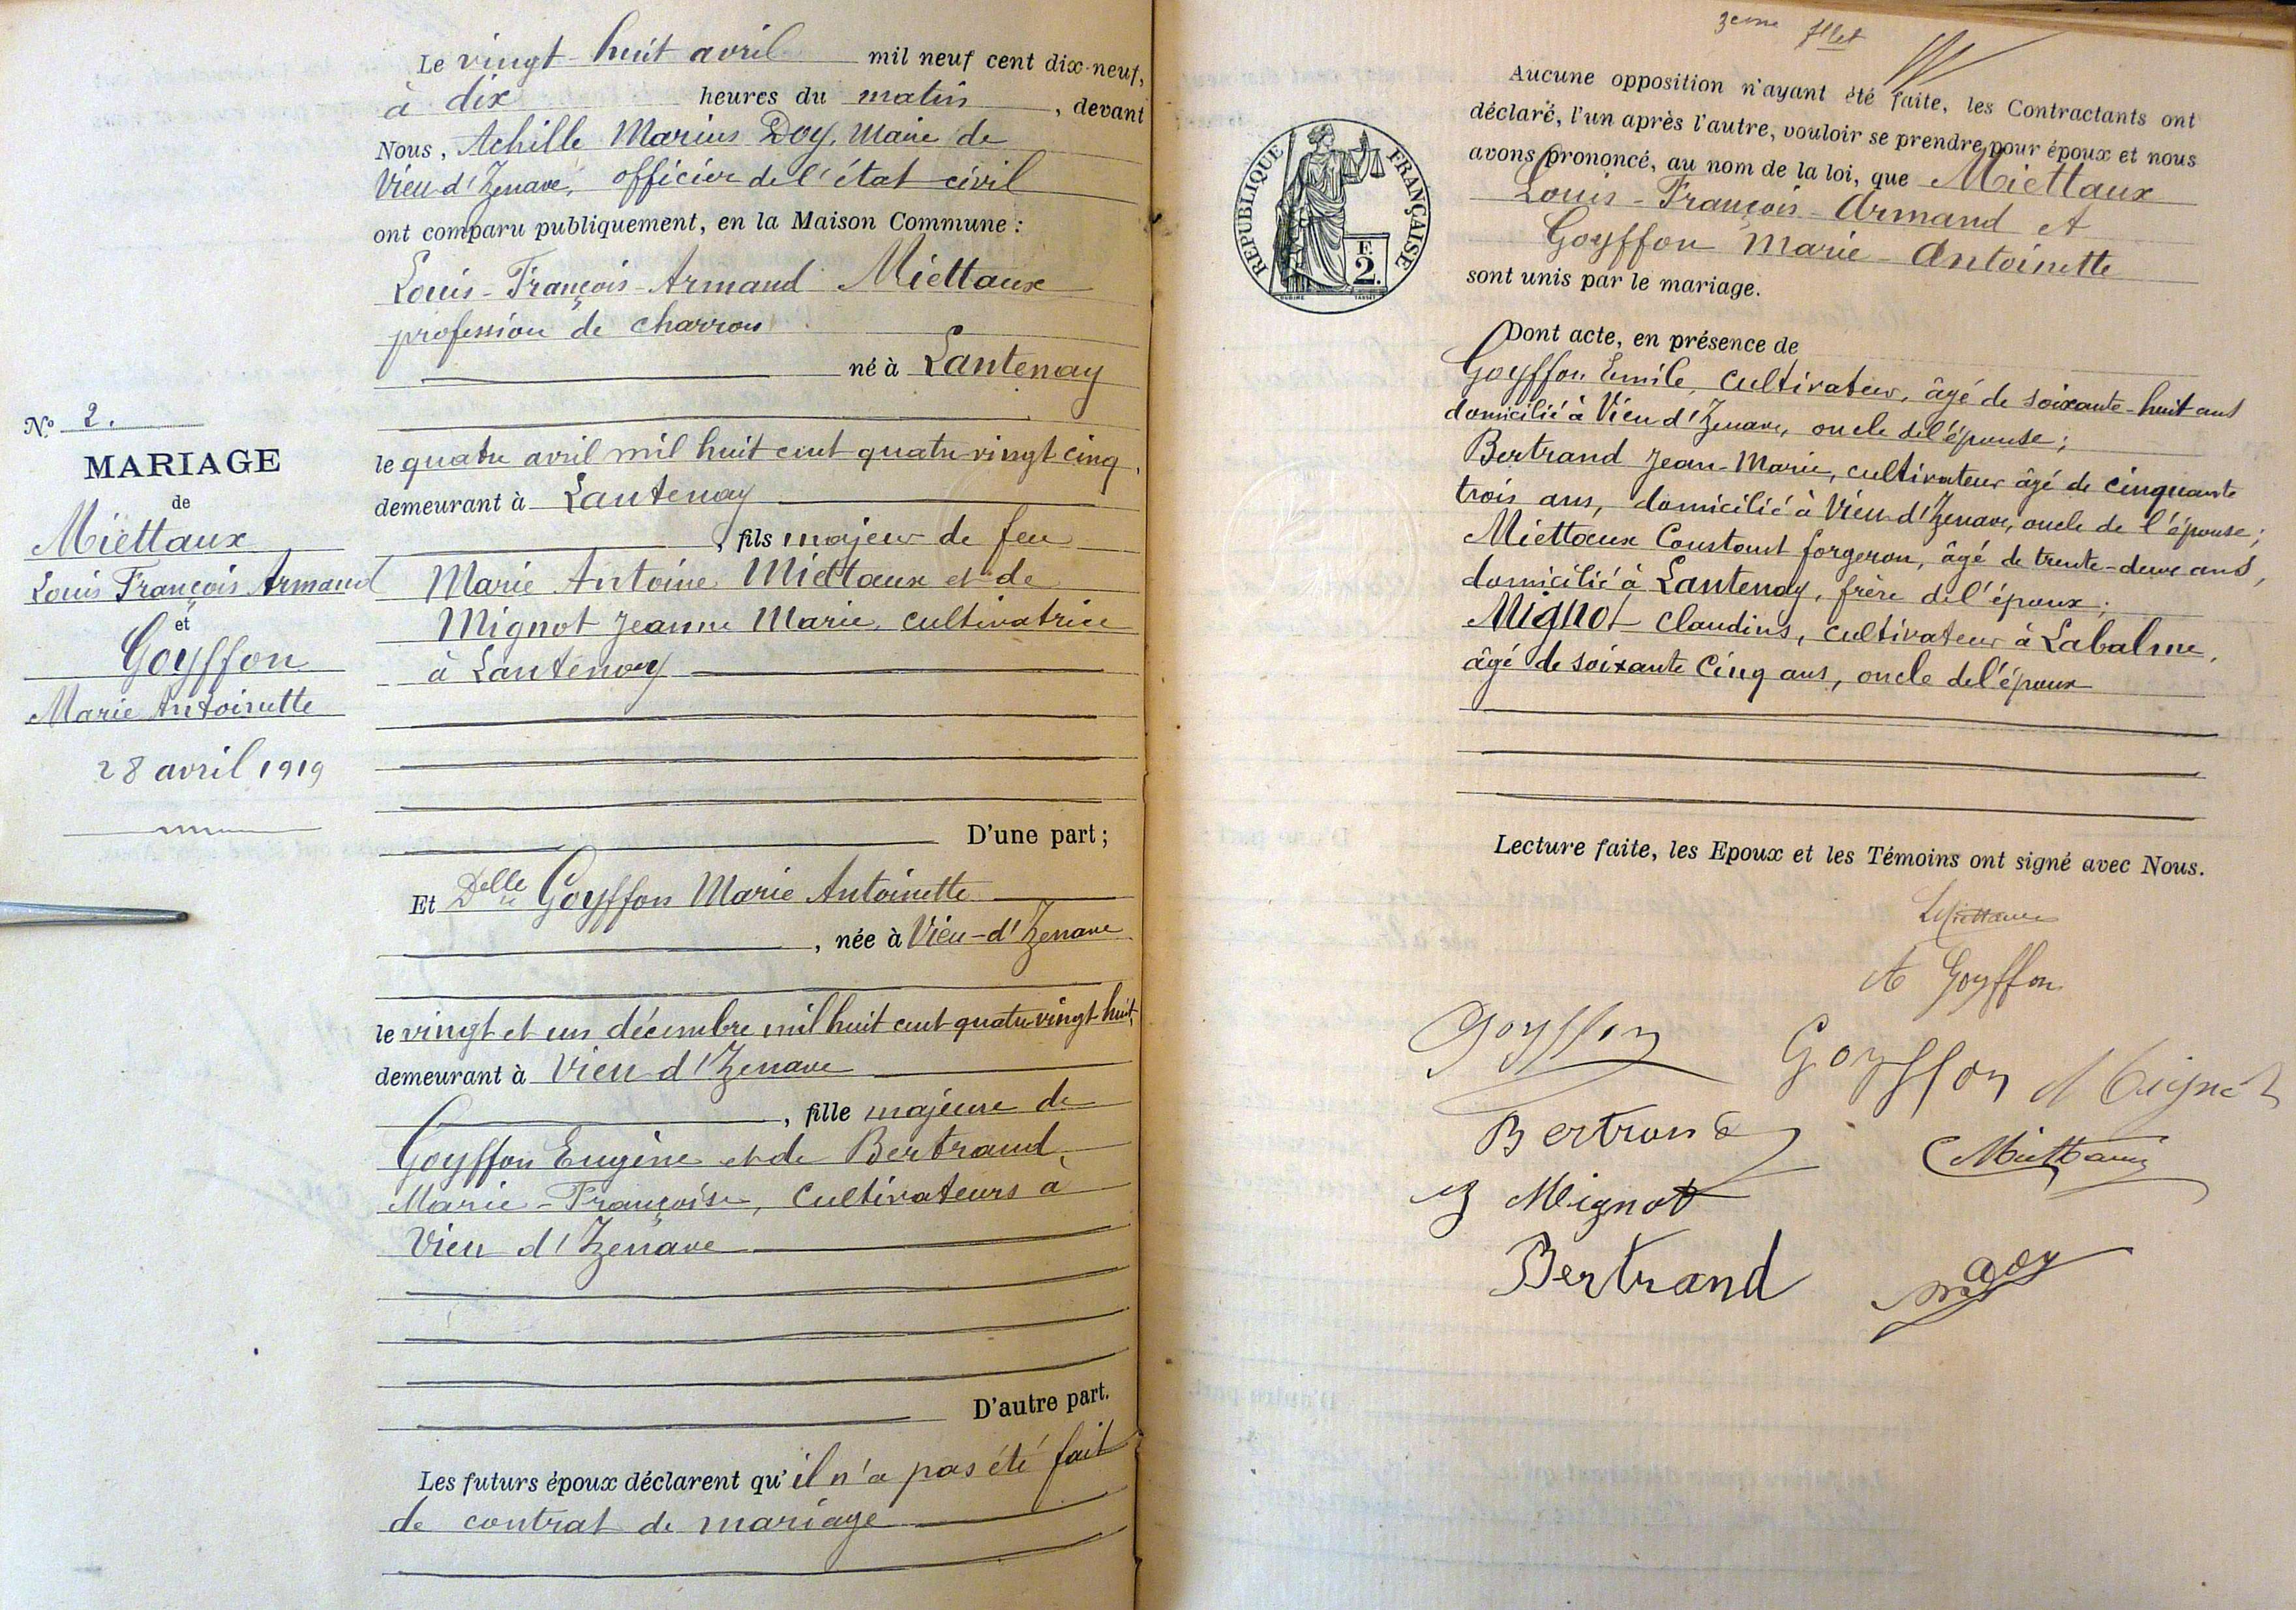 Le vingt-huit avril mil neuf cent dix-neuf,
à dix heures du matin, devant
Nous, Achille Marius Doy, Maire de
Vieu d'Izenave, officier de l'état civil
ont comparu publiquement, en la Maison Commune :
Louis-François-Armand Miettaux
profession de charron
né à Lantenay
le quatre avril mil huit cent quatre vingt cinq,
demeurant à Lantenay
, fils majeur de feu
Marie Antoine Miettaux et de
Mignot Jeanne Marie, cultivatrice
à Lantenay
D'une part ;
Et Delle Goyffon Marie Antoinette
, née à Vieu-d'Izenave
le vingt et un décembre mil huit cent quatre vingt huit,
demeurant à Vieu d'Izenave
, fille majeure de
Goyffon Eugène et de Bertrand,
Marie-Françoise, cultivateurs à
Vieu d'Izenave
D'autre part.
Les futurs époux déclarent qu'il n'a pas été fait
de contrat de mariage
No 2.
MARIAGE
de
Miettaux
Louis François Armand
et
Goyffon
Marie Antoinette
28 avril 1919
3eme
Aucune opposition n'ayant été faite, les Contractants ont
déclaré, l'un après l'autre, vouloir se prendre pour époux et nous
avons prononcé, au nom de la loi, que Miettaux
Louis-François-Armand et
Goyffon Marie-Antoinette
sont unis par le mariage.
RÉPUBLIQUE FRANÇAISE
F.
2.
Dont acte, en présence de
Goyffon Emile, cultivateur, âgé de soixante-huit ans
domicilié à Vieu d'Izenave, oncle de l'épouse ;
Bertrand Jean-Marie, cultivateur âgé de cinquante
trois ans, domicilié à Vieu d'Izenave, oncle de l'épouse ;
Miettaux Constant forgeron, âgé de trente-deux ans,
domicilié à Lantenay, frère de l'époux ;
Mignot Claudius, cultivateur à Labalme,
âgé de soixante cinq ans, oncle de l'époux
Lecture faite, les Epoux et les Témoins ont signé avec Nous.
L Miettaux
A Goyffon
Goyffon Goyffon Mignot
Bertrand C Miettaux
Mignot
Bertrand Doy